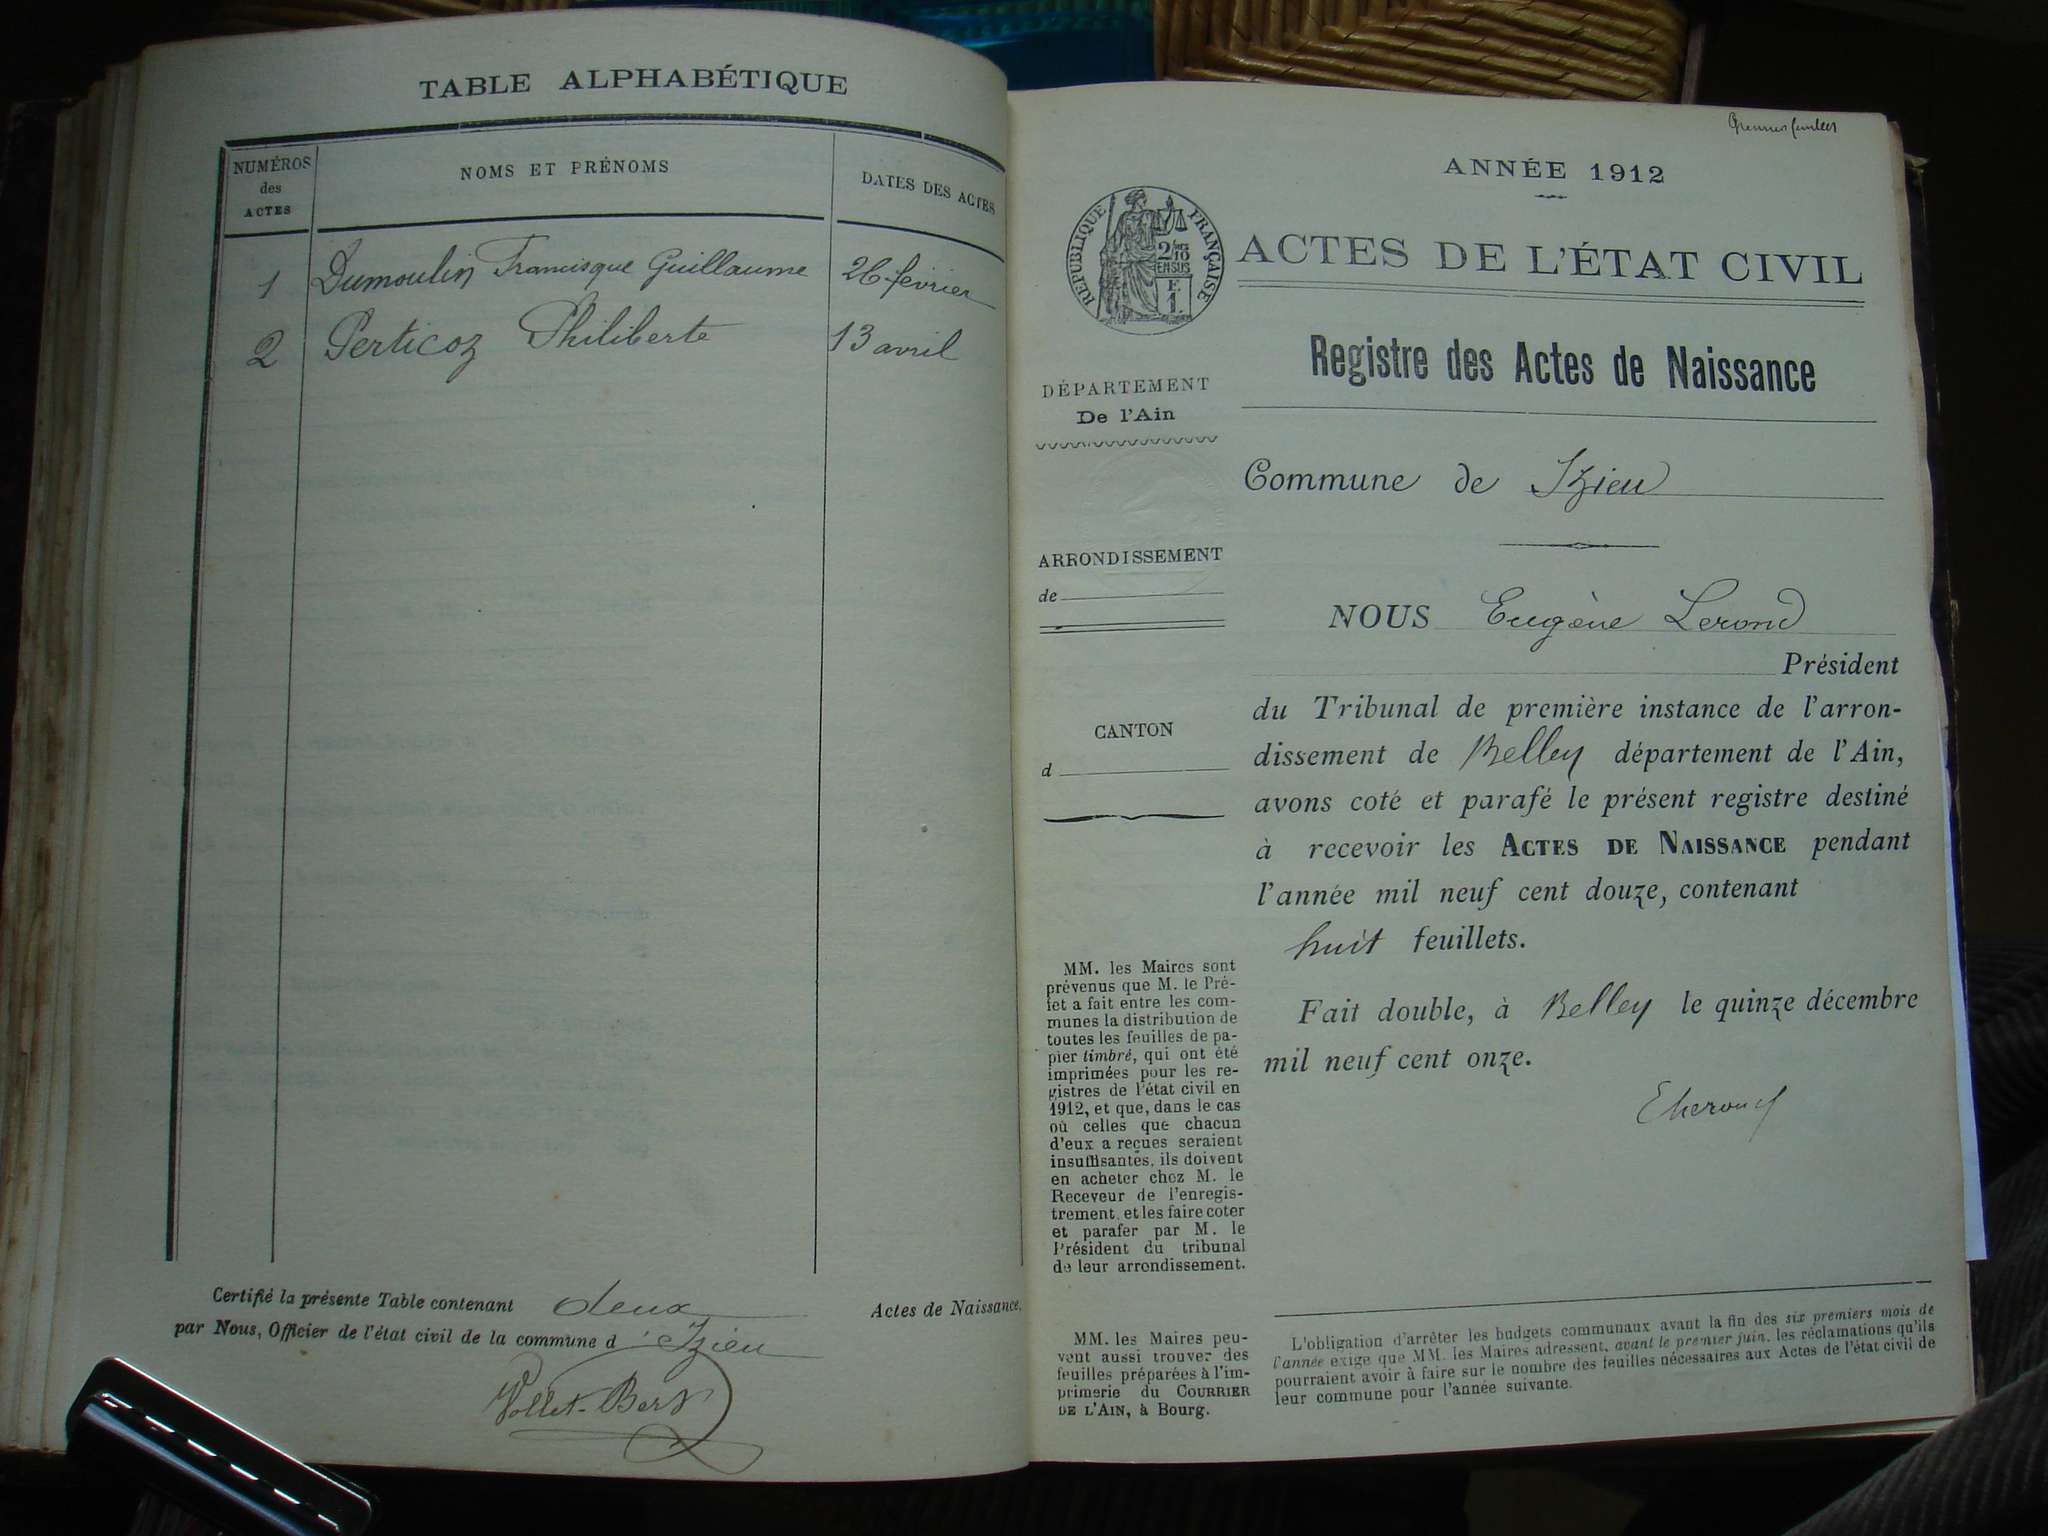 TABLE ALPHABÉTIQUE
NUMÉROS
des
ACTES
NOMS ET PRÉNOMS
DATES DES ACTES
1 Dumoulin Francisque Guillaume 26 février
2 Perticoz Philiberte 13 avril
Certifié la présente Table contenant deux Actes de Naissance,
par Nous, Officier de l'état civil de la commune d'Izieu
Vollet-Bert
Premier feuillet
ANNÉE 1912
RÉPUBLIQUE FRANÇAISE
2/10
EN SUS
F.
1.
ACTES DE L'ÉTAT CIVIL
Registre des Actes de Naissance
DÉPARTEMENT
De l'Ain
Commune de Izieu
ARRONDISSEMENT
de
CANTON
d
MM. les Maires sont
prévenus que M. le Pré-
fet a fait entre les com-
munes la distribution de
toutes les feuilles de pa-
pier timbré, qui ont été
imprimées pour les re-
gistres de l'état civil en
1912, et que, dans le cas
où celles que chacun
d'eux a reçues seraient
insuffisantes, ils doivent
en acheter chez M. le
Receveur de l'enregis-
trement, et les faire coter
et parafer par M. le
Président du tribunal
de leur arrondissement.
MM. les Maires peu-
vent aussi trouver des
feuilles préparées à l'im-
primerie du COURRIER
DE L'AIN, à Bourg.
NOUS Eugène Lerond
Président
du Tribunal de première instance de l'arron-
dissement de Belley département de l'Ain,
avons coté et parafé le présent registre destiné
à recevoir les ACTES DE NAISSANCE pendant
l'année mil neuf cent douze, contenant
huit feuillets.
Fait double, à Belley le quinze décembre
mil neuf cent onze.
L'obligation d'arrêter les budgets communaux avant la fin des six premiers mois de
l'année exige que MM. les Maires adressent, avant le premier juin, les réclamations qu'ils
pourraient avoir à faire sur le nombre des feuilles nécessaires aux Actes de l'état civil de
leur commune pour l'année suivante.